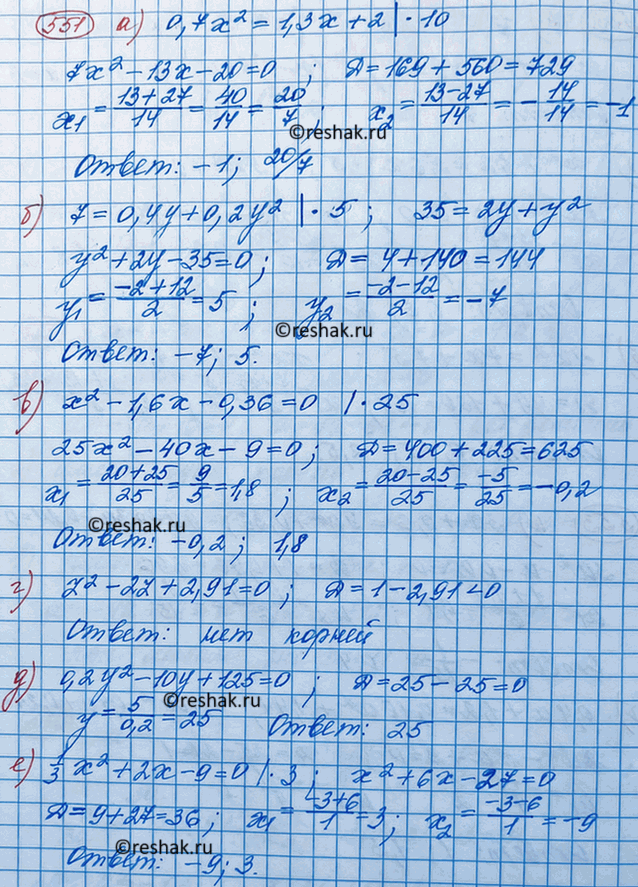 551 а) 0,7x² = 1,3x + 2 | · 10
7x² – 13x – 20 = 0 ; D = 169 + 560 = 729
x₁ = (13+27)/14 = 40/14 = 20/7 ; x₂ = (13–27)/14 = –14/14 = –1
©reshak.ru
Ответ: –1; 20/7
б) 7 = 0,4y + 0,2y² | · 5 ; 35 = 2y + y²
y² + 2y – 35 = 0 ; D = 4 + 140 = 144
y₁ = (–2+12)/2 = 5 ; y₂ = (–2–12)/2 = –7
©reshak.ru
Ответ: –7; 5.
в) x² – 1,6x – 0,36 = 0 | · 25
25x² – 40x – 9 = 0 ; D = 400 + 225 = 625
x₁ = (20+25)/25 = 9/5 = 1,8 ; x₂ = (20–25)/25 = –5/25 = –0,2
©reshak.ru
Ответ: –0,2 ; 1,8
г) z² – 2z + 2,91 = 0 ; D = 1 – 2,91 < 0
Ответ: нет корней
д) 0,2y² – 10y + 125 = 0 ; D = 25 – 25 = 0
©reshak.ru
y = 5/0,2 = 25 Ответ: 25
е) 1/3 x² + 2x – 9 = 0 | · 3 ; x² + 6x – 27 = 0
D = 9 + 27 = 36 ; x₁ = (–3+6)/1 = 3 ; x₂ = (–3–6)/1 = –9
©reshak.ru
Ответ: –9; 3.